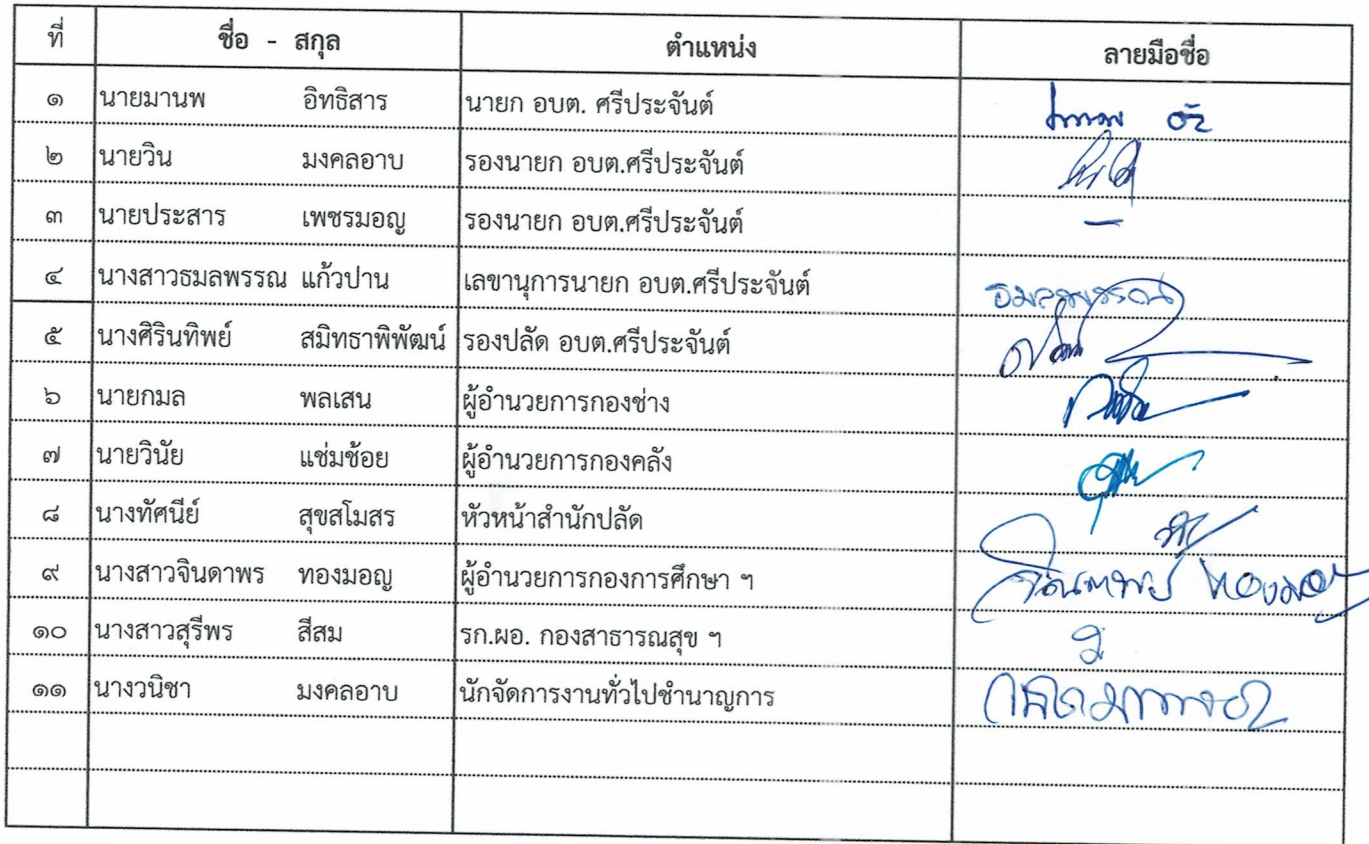 ที่ ชื่อ - สกุล ตำแหน่ง ลายมือชื่อ
๑ นายมานพ อิทธิสาร นายก อบต. ศรีประจันต์
๒ นายวิน มงคลอาบ รองนายก อบต.ศรีประจันต์
๓ นายประสาร เพชรมอญ รองนายก อบต.ศรีประจันต์ -
๔ นางสาวธมลพรรณ แก้วปาน เลขานุการนายก อบต.ศรีประจันต์ ธมลพรรณ
๕ นางศิรินทิพย์ สมิทธาพิพัฒน์ รองปลัด อบต.ศรีประจันต์
๖ นายกมล พลเสน ผู้อำนวยการกองช่าง
๗ นายวินัย แช่มช้อย ผู้อำนวยการกองคลัง
๘ นางทัศนีย์ สุขสโมสร หัวหน้าสำนักปลัด
๙ นางสาวจินดาพร ทองมอญ ผู้อำนวยการกองการศึกษา ฯ จินดาพร ทองมอญ
๑๐ นางสาวสุรีพร สีสม รก.ผอ. กองสาธารณสุข ฯ
๑๑ นางวนิชา มงคลอาบ นักจัดการงานทั่วไปชำนาญการ